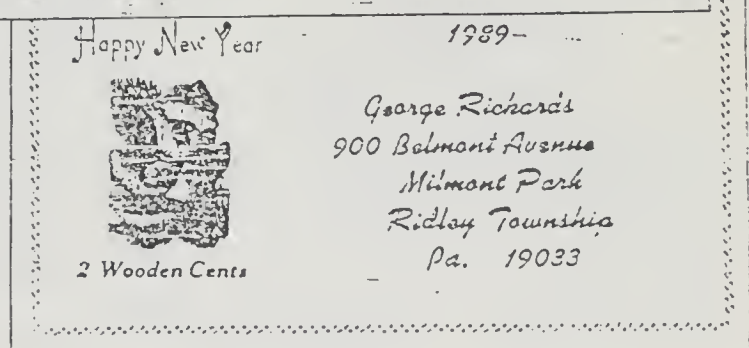 Happy New Year
2 Wooden Cents
1989-
George Richards
900 Belmont Avenue
Milmont Park
Ridley Township
Pa. 19033